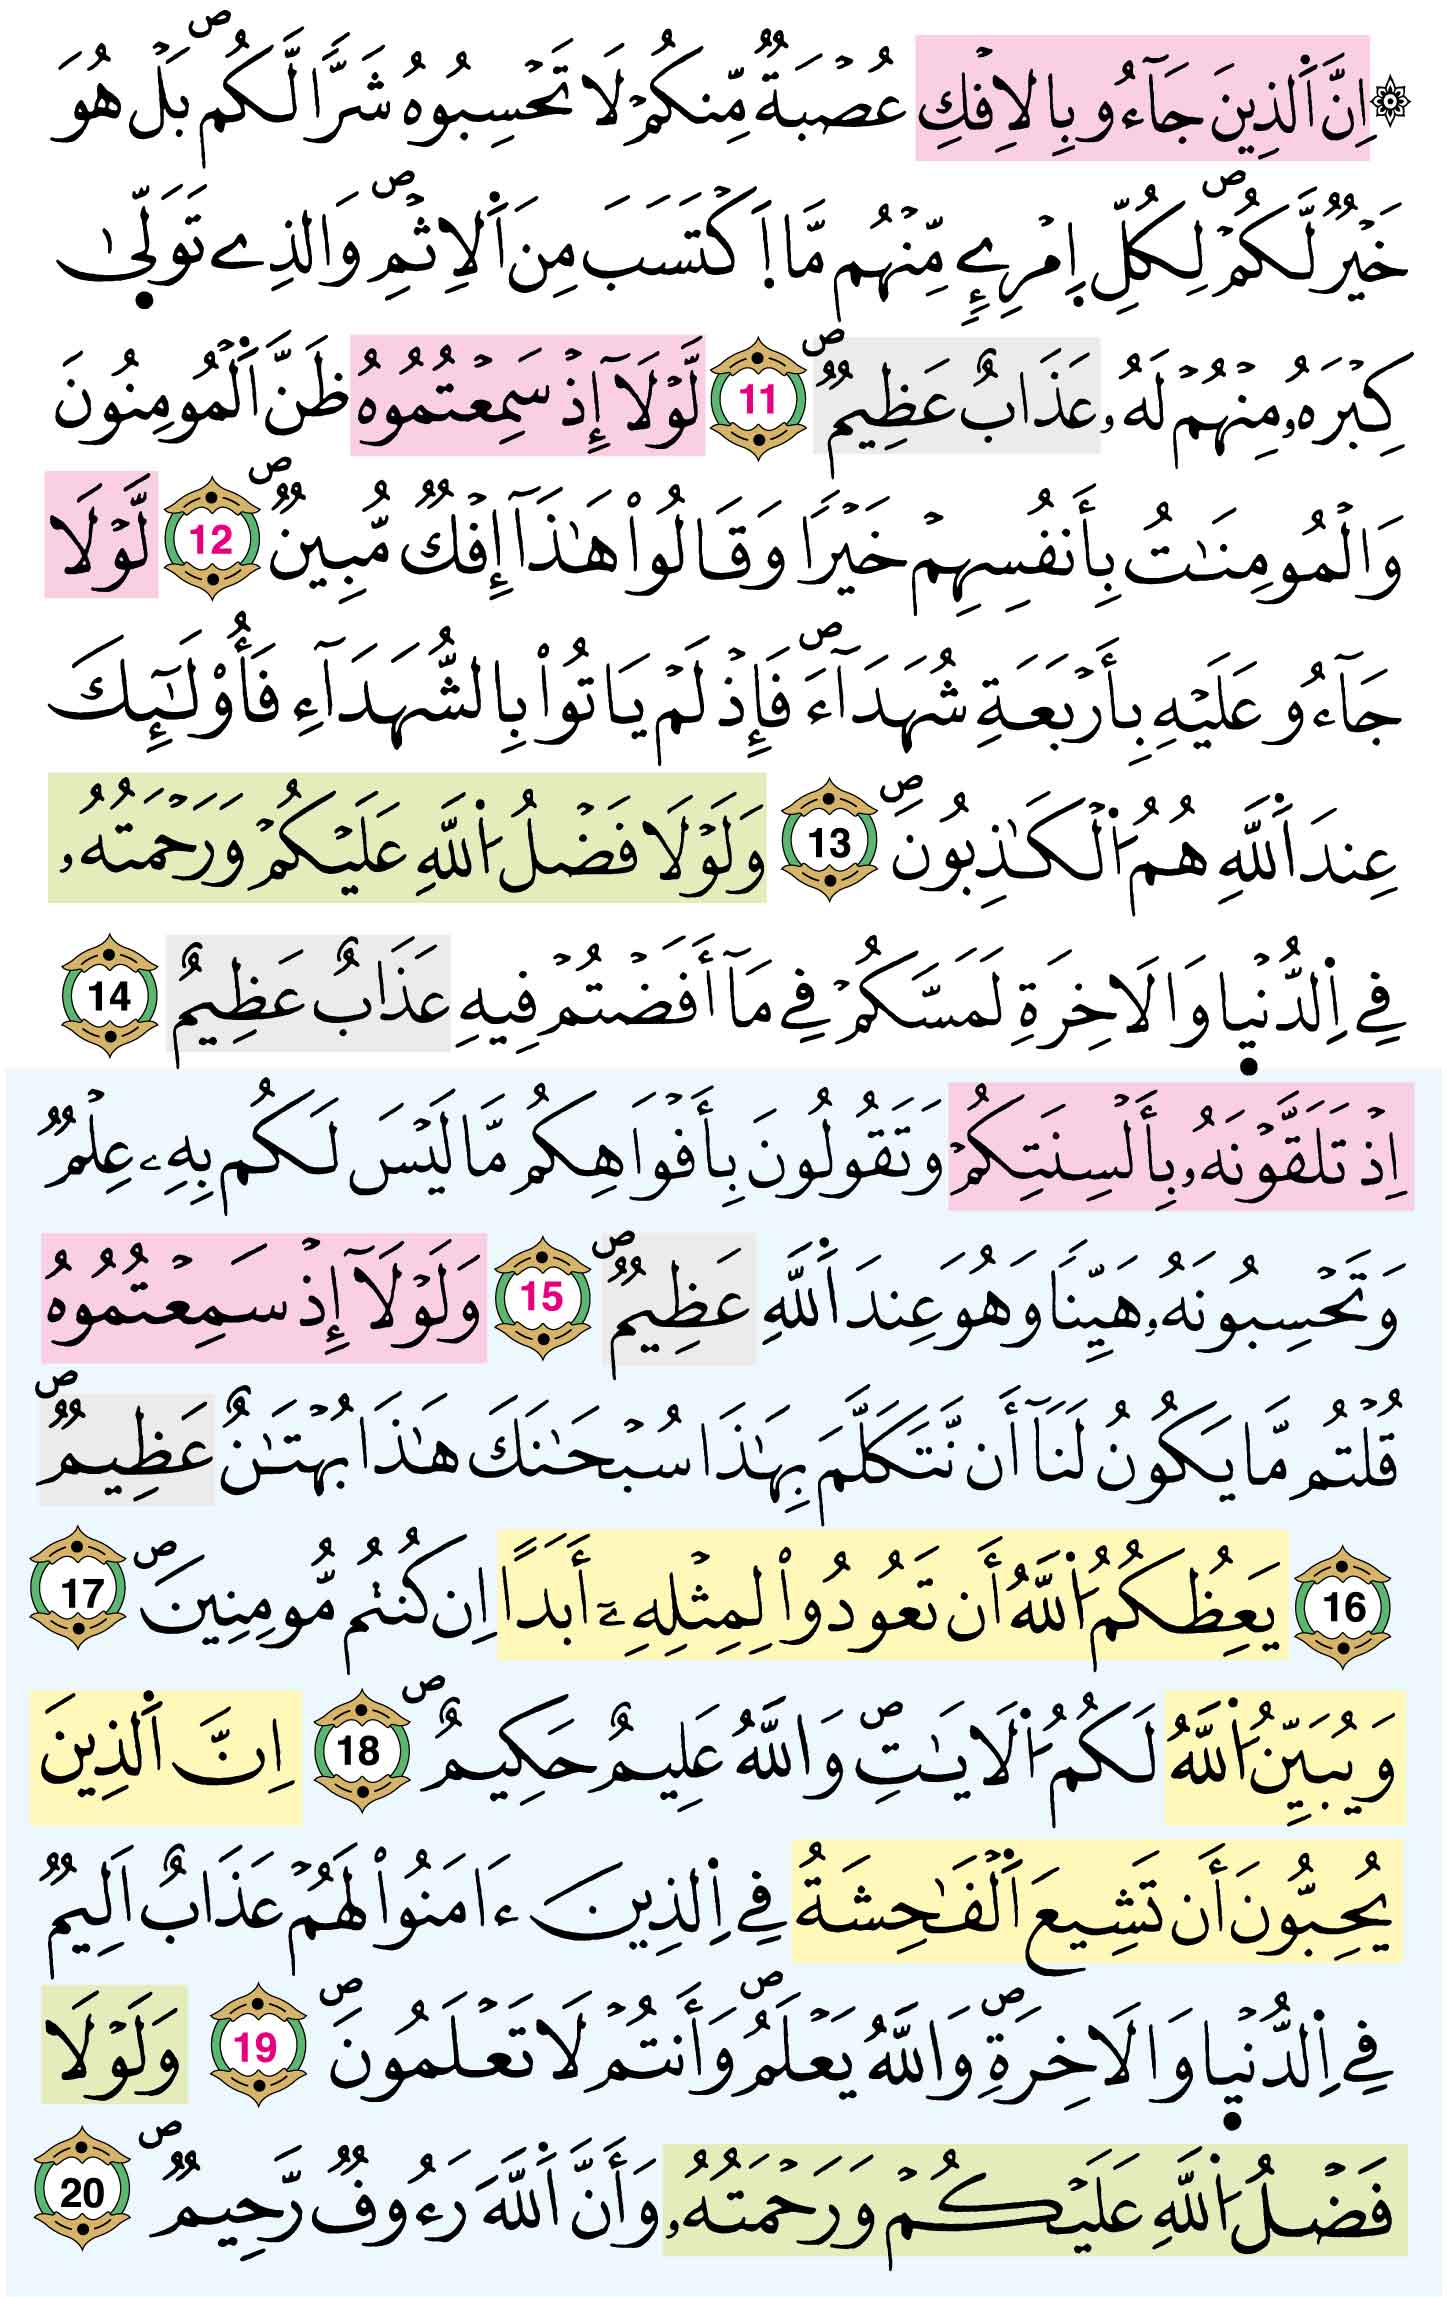 ۞ اِنَّ اَ۬لذِينَ جَآءُو بِالِافْكِ عُصْبَةٞ مِّنكُمْ لَا تَحْسِبُوهُ شَرّاٗ لَّكُمۖ بَلْ هُوَ
خَيْرٞ لَّكُمْۖ لِكُلِّ اِ۪مْرِےٕٖ مِّنْهُم مَّا اَ۪كْتَسَبَ مِنَ اَ۬لِاثْمِۖ وَالذِے تَوَلّ۪يٰ
كِبْرَهُۥ مِنْهُمْ لَهُۥ عَذَابٌ عَظِيمٞۖ 11 لَّوْلَآ إِذْ سَمِعْتُمُوهُ ظَنَّ اَ۬لْمُومِنُونَ
وَالْمُومِنَٰتُ بِأَنفُسِهِمْ خَيْراٗ وَقَالُواْ هَٰذَآ إِفْكٞ مُّبِينٞۖ 12 لَّوْلَا
جَآءُو عَلَيْهِ بِأَرْبَعَةِ شُهَدَآءَۖ فَإِذْ لَمْ يَاتُواْ بِالشُّهَدَآءِ فَأُوْلَٰٓئِكَ
عِندَ اَ۬للَّهِ هُمُ اُ۬لْكَٰذِبُونَۖ 13 وَلَوْلَا فَضْلُ اُ۬للَّهِ عَلَيْكُمْ وَرَحْمَتُهُۥ
فِے اِ۬لدُّنْي۪ا وَالَاخِرَةِ لَمَسَّكُمْ فِے مَآ أَفَضْتُمْ فِيهِ عَذَابٌ عَظِيمٌ 14
اِذْ تَلَقَّوْنَهُۥ بِأَلْسِنَتِكُمْ وَتَقُولُونَ بِأَفْوَاهِكُم مَّا لَيْسَ لَكُم بِهِۦ عِلْمٞ
وَتَحْسِبُونَهُۥ هَيِّناٗ وَهُوَ عِندَ اَ۬للَّهِ عَظِيمٞۖ 15 وَلَوْلَآ إِذْ سَمِعْتُمُوهُ
قُلْتُم مَّا يَكُونُ لَنَآ أَن نَّتَكَلَّمَ بِهَٰذَا سُبْحَٰنَكَ هَٰذَا بُهْتَٰنٌ عَظِيمٞۖ
16 يَعِظُكُمُ اُ۬للَّهُ أَن تَعُودُواْ لِمِثْلِهِۦٓ أَبَداً اِن كُنتُم مُّومِنِينَۖ 17
وَيُبَيِّنُ اُ۬للَّهُ لَكُمُ اُ۬لَايَٰتِۖ وَاللَّهُ عَلِيمٌ حَكِيمٌۖ 18 اِنَّ اَ۬لذِينَ
يُحِبُّونَ أَن تَشِيعَ اَ۬لْفَٰحِشَةُ فِے اِ۬لذِينَ ءَامَنُواْ لَهُمْ عَذَابٌ اَلِيمٞ
فِے اِ۬لدُّنْي۪ا وَالَاخِرَةِۖ وَاللَّهُ يَعْلَمُۖ وَأَنتُمْ لَا تَعْلَمُونَۖ 19 وَلَوْلَا
فَضْلُ اُ۬للَّهِ عَلَيْكُمْ وَرَحْمَتُهُۥ وَأَنَّ اَ۬للَّهَ رَءُوفٞ رَّحِيمٞۖ 20